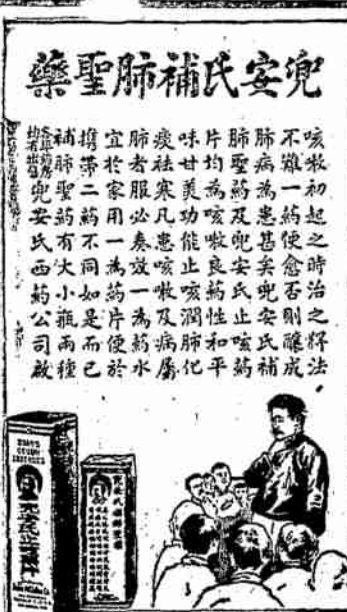 兜安氏補肺聖藥
咳嗽初起之時治之得法
不難一藥便愈否則釀成
肺病為患甚矣兜安氏補
肺聖藥及兜安氏止咳藥
片均為咳嗽良藥性和平
味甘美功能止咳潤肺化
痰祛寒凡患咳嗽及病屬
肺者服必奏效一為藥水
宜於家用一為藥片便於
携帶二藥不同如是而已
補肺聖藥有大小瓶兩種
各埠藥房均有出售
兜安氏西藥公司啟